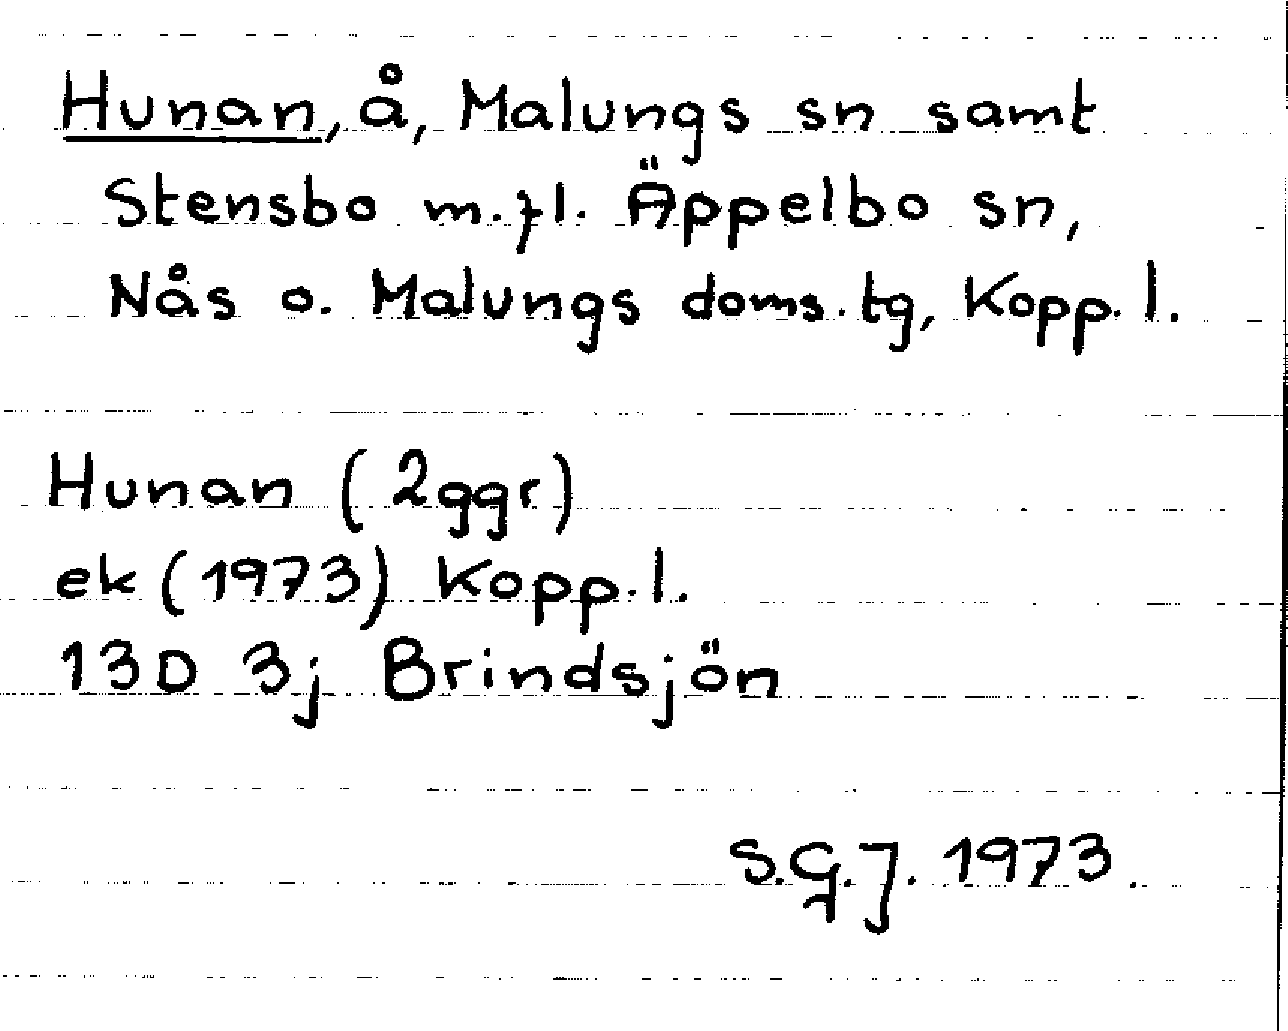 Hunan, å, Malungs sn samt
Stensbo m.fl. Äppelbo sn,
Nås o. Malungs doms.tg, Kopp.l.
Hunan (2ggr)
ek (1973) Kopp.l.
13D 3j Brindsjön
S.G.J. 1973.